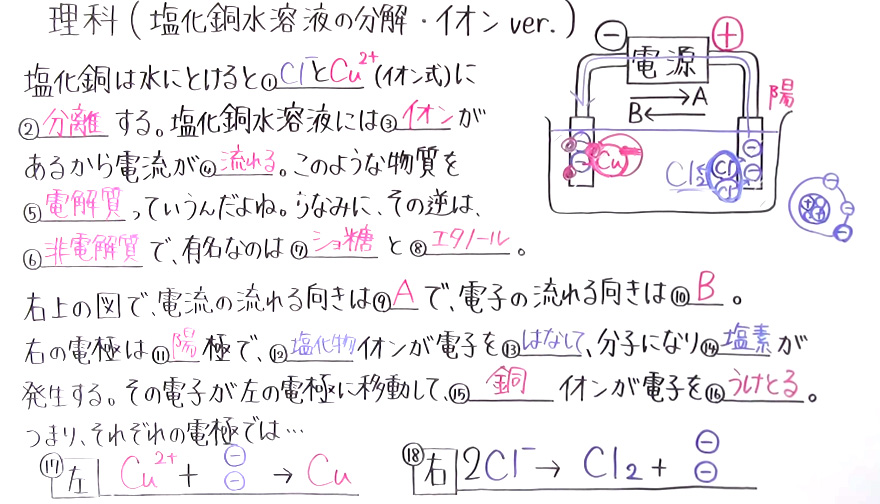 理科(塩化銅水溶液の分解・イオンver.)
⊖ 電源 ⊕
A
B
陽
Cu
Cl₂ Cl Cl
塩化銅は水にとけると①Cl⁻とCu²⁺(イオン式)に
②分離する。塩化銅水溶液には③イオンが
あるから電流が④流れる。このような物質を
⑤電解質っていうんだよね。ちなみに、その逆は、
⑥非電解質で、有名なのは⑦ショ糖と⑧エタノール。
右上の図で、電流の流れる向きは⑨Aで、電子の流れる向きは⑩B。
右の電極は⑪陽極で、⑫塩化物イオンが電子を⑬はなして、分子になり⑭塩素が
発生する。その電子が左の電極に移動して、⑮銅イオンが電子を⑯うけとる。
つまり、それぞれの電極では…
⑰左 Cu²⁺ + ⊖ ⊖ → Cu
⑱右 2Cl⁻ → Cl₂ + ⊖ ⊖